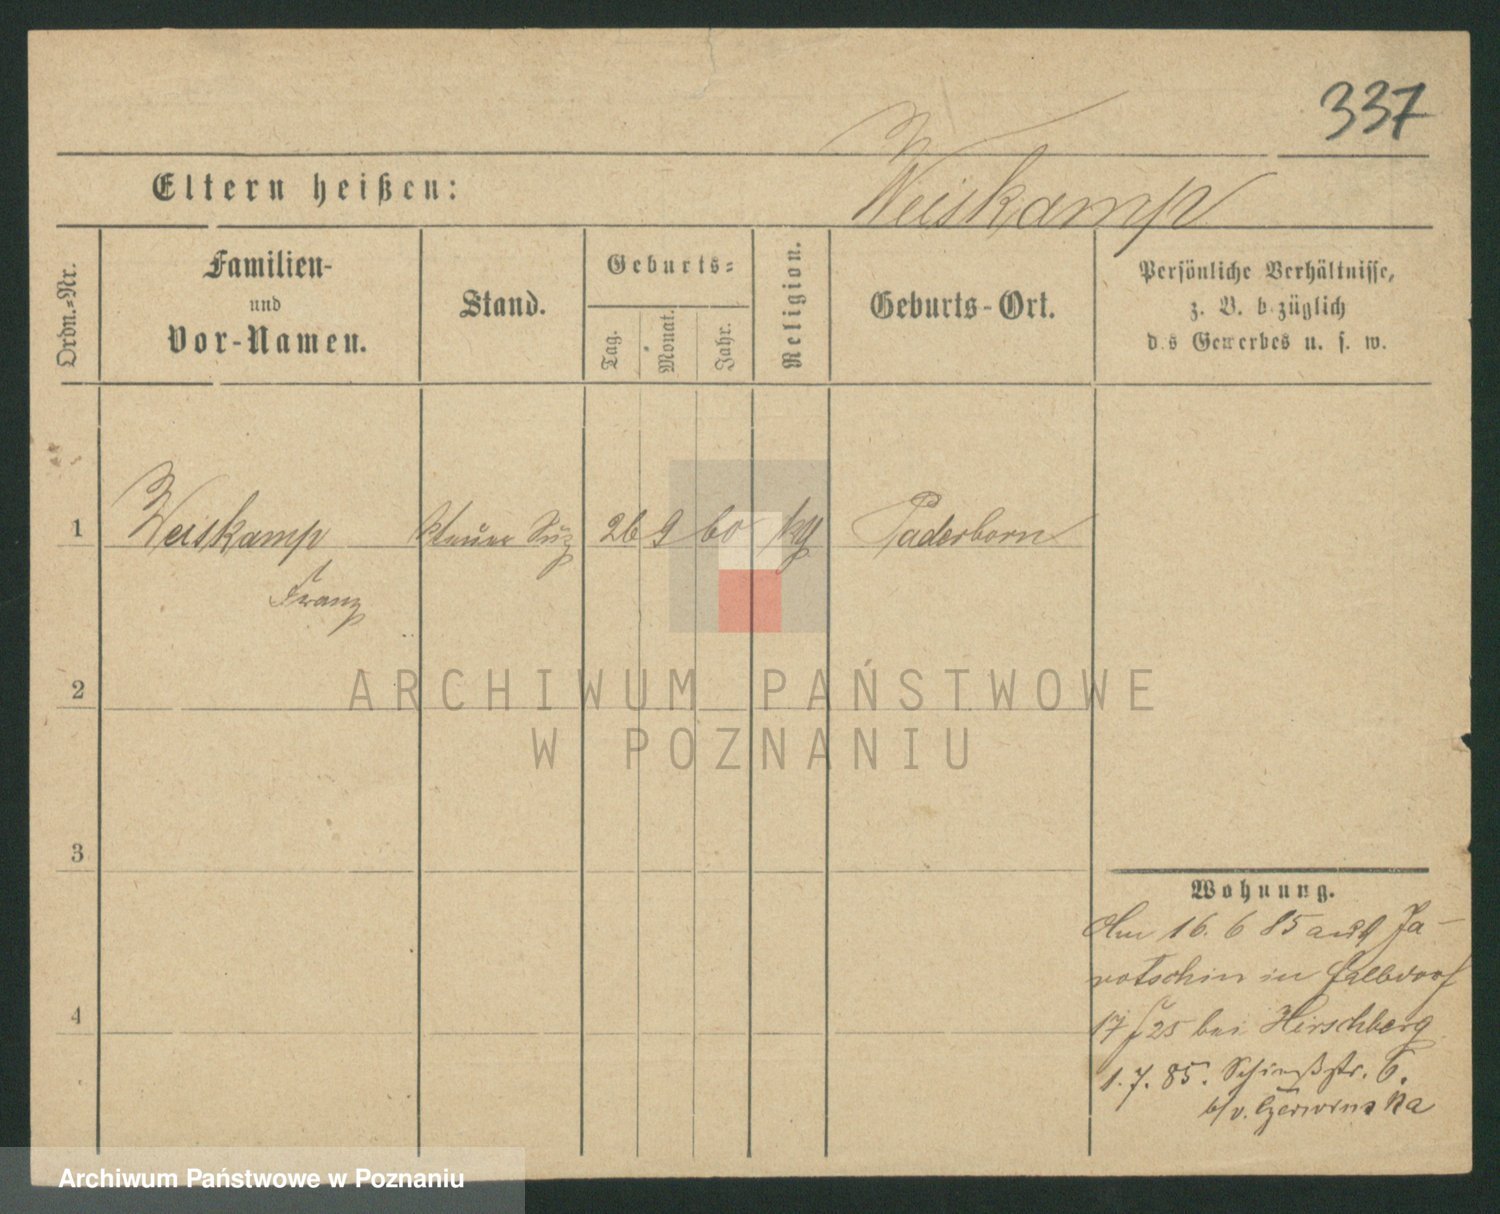 337
Weiskamp
Eltern heißen:
Ordn.=Nr.
Familien-
und
Vor-Namen.
Stand.
Geburts=
Tag.
Monat.
Jahr.
Religion.
Geburts-Ort.
Persönliche Verhältnisse,
z. B. b züglich
d s Gewerbes u. s. w.
1 Weiskamp 26 9 60 Paderborn
Franz
2
3
4
Wohnung.
Am 16. 6 85 aus Ja-
rotschin in
17/25 bei Hirschberg
1. 7. 85. Schießstr. 6.
b/v. Czerwinska
ARCHIWUM PAŃSTWOWE
W POZNANIU
Archiwum Państwowe w Poznaniu